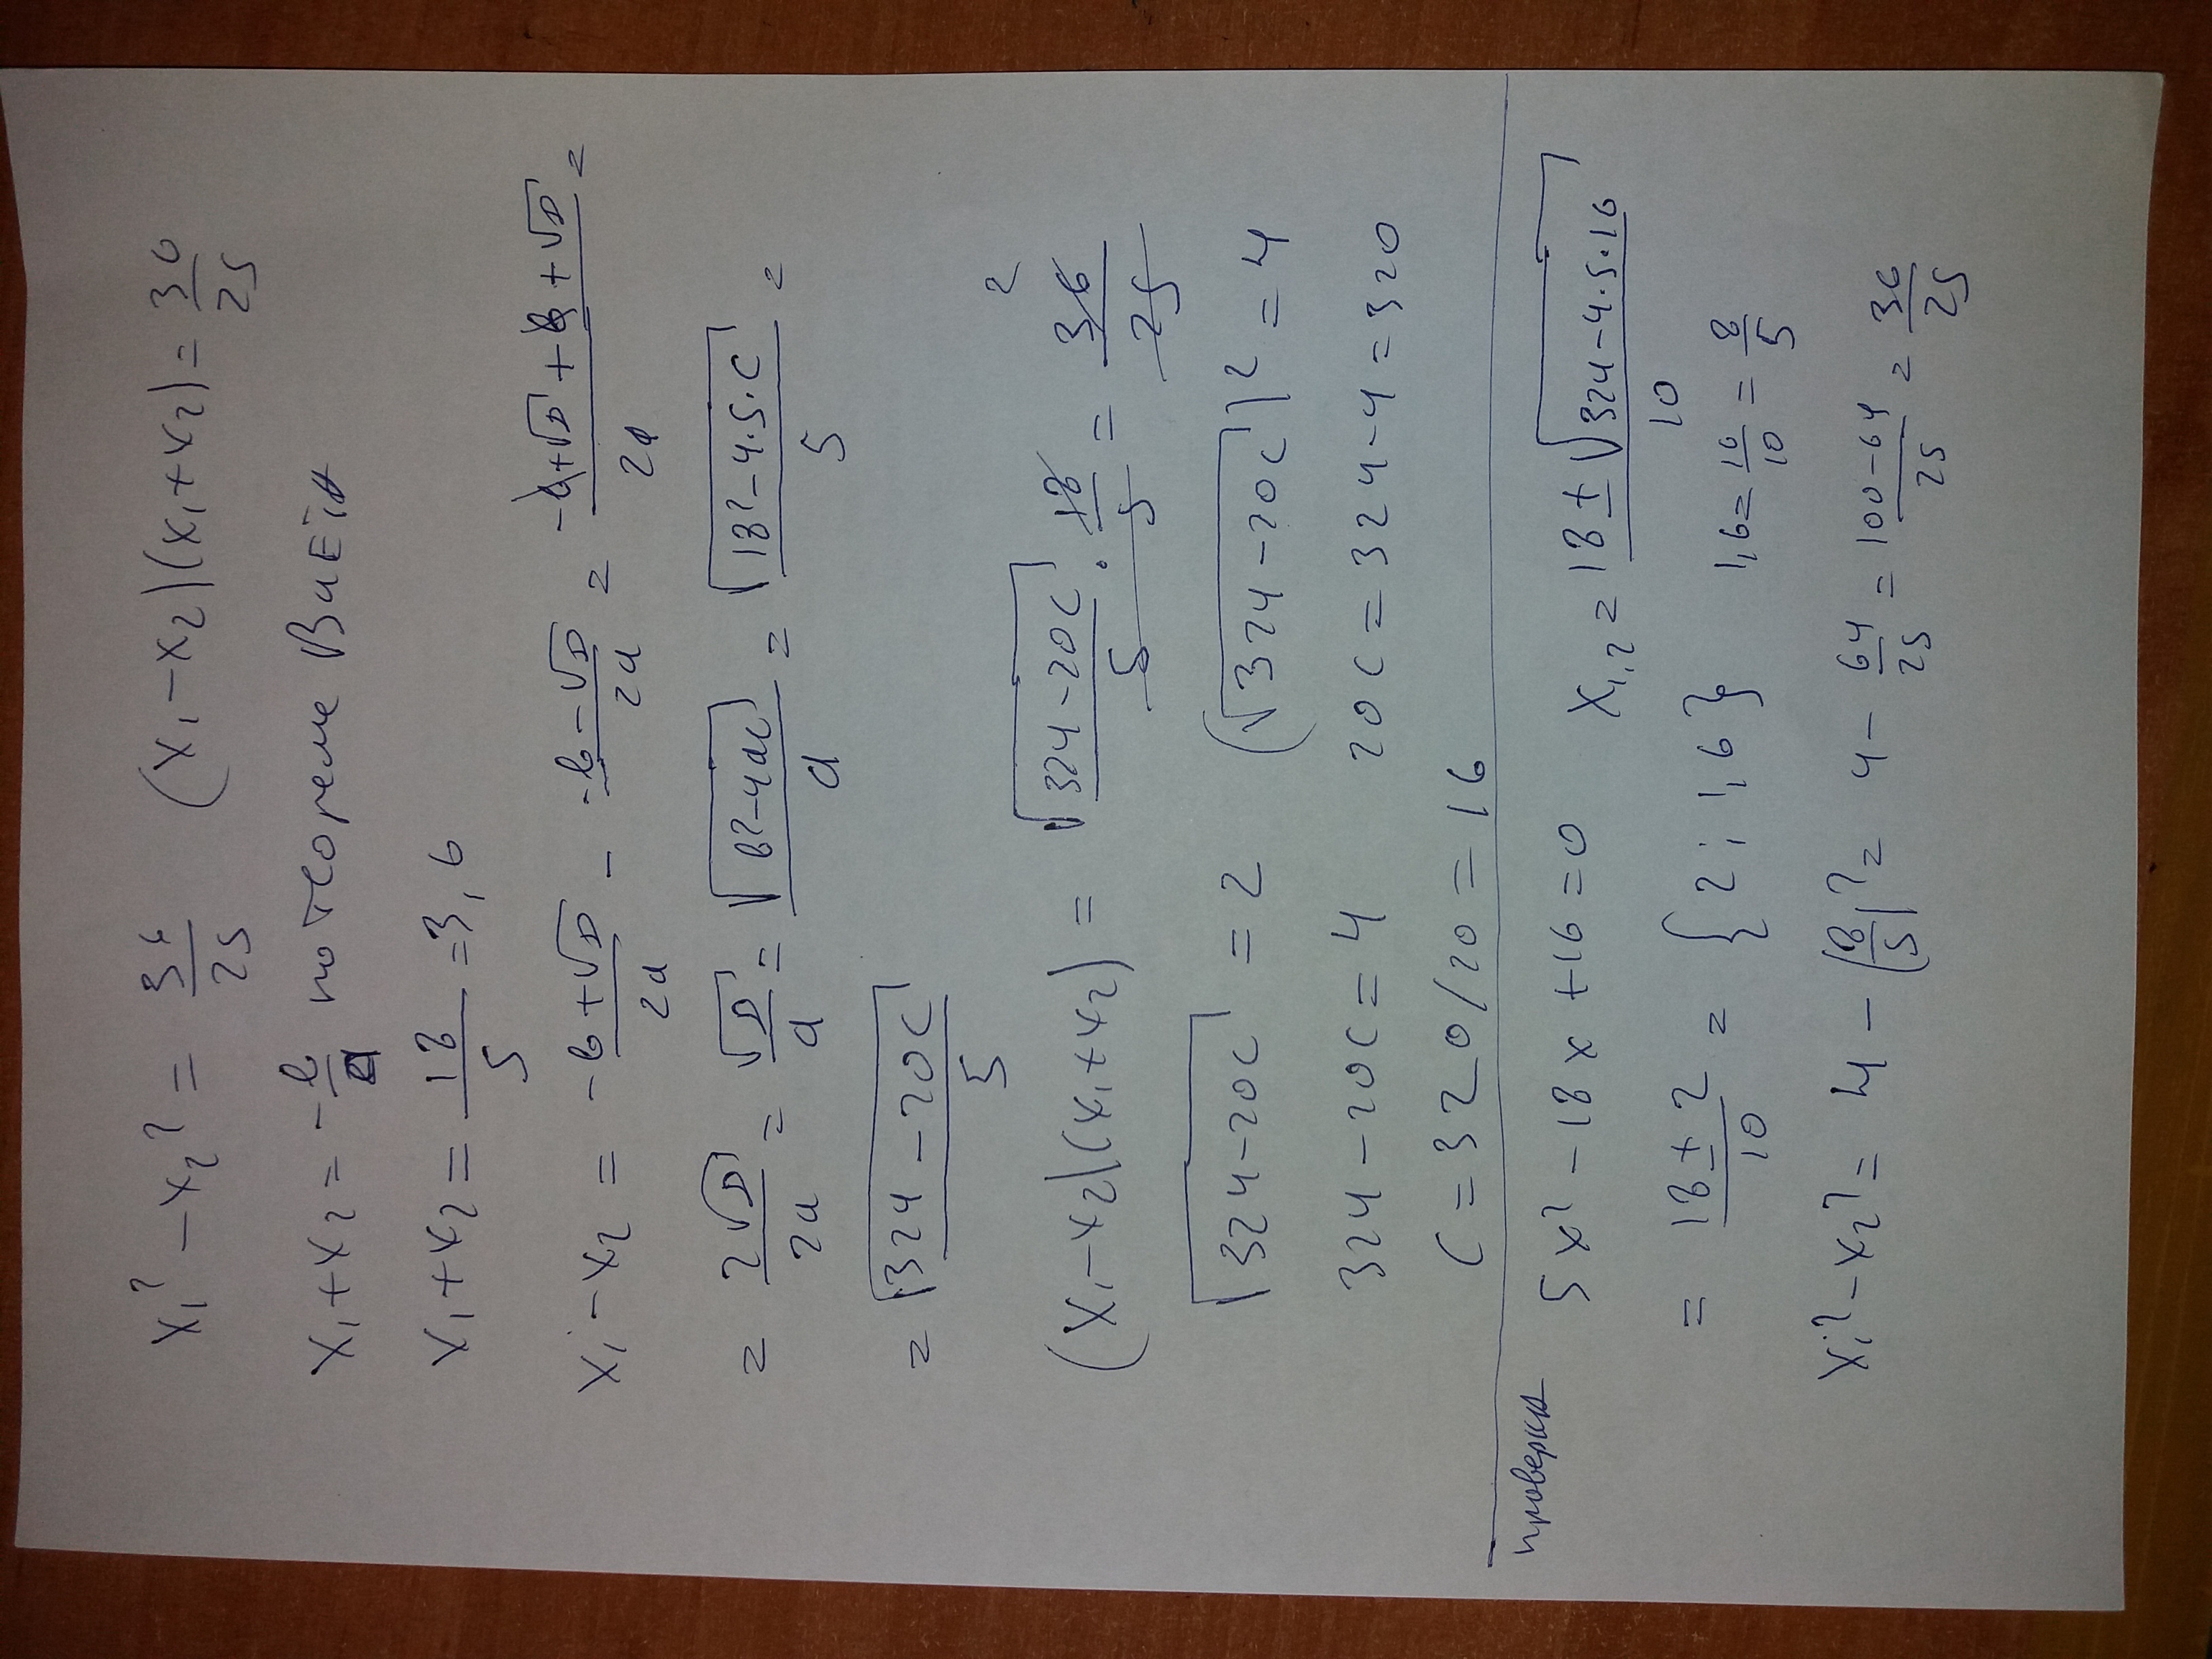 x₁² - x₂² = 36/25 (x₁-x₂)(x₁+x₂) = 36/25
x₁+x₂ = -b/a по теореме Виета
x₁+x₂ = 18/5 = 3,6
x₁-x₂ = (-b+√D)/2a - (-b-√D)/2a = (-b+√D+b+√D)/2a =
= 2√D/2a = √D/a = √(b²-4ac)/a = √(18²-4·5·c)/5 =
= √(324-20c)/5
(x₁-x₂)(x₁+x₂) = √(324-20c)/5 · 18/5 = 36/25 2
√(324-20c) = 2 (√(324-20c))² = 4
324-20c = 4 20c = 324-4 = 320
c = 320/20 = 16
проверка
5x² - 18x + 16 = 0 x₁,₂ = (18 ± √(324-4·5·16))/10
= (18 ± 2)/10 = {2; 1,6} 1,6 = 16/10 = 8/5
x₁² - x₂² = 4 - (8/5)² = 4 - 64/25 = (100-64)/25 = 36/25